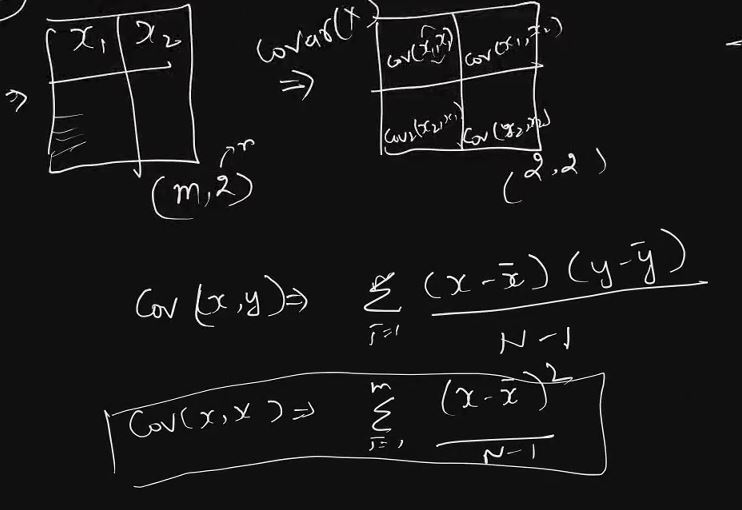 x₁ x₂
⇒
Covar(X)
⇒
Cov(x₁,x₁) Cov(x₁,x₂)
Cov(x₂,x₁) Cov(x₂,x₂)
(m,2) n
(2,2)
Cov(x,y) ⇒ Σ i=1 (x-x̄)(y-ȳ)
N-1
Cov(x,x) ⇒ m Σ i=1 (x-x̄)²
N-1